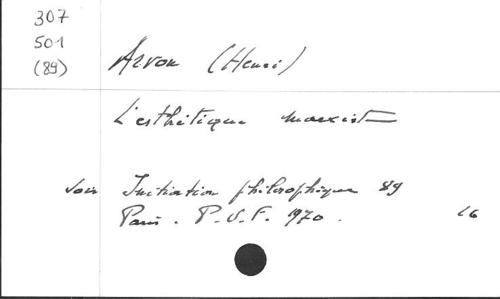 307
501
(89)
Arvon (Henri)
L'esthétique marxiste
voir Initiation philosophique 89
Paris. P.U.F. 1970. 16